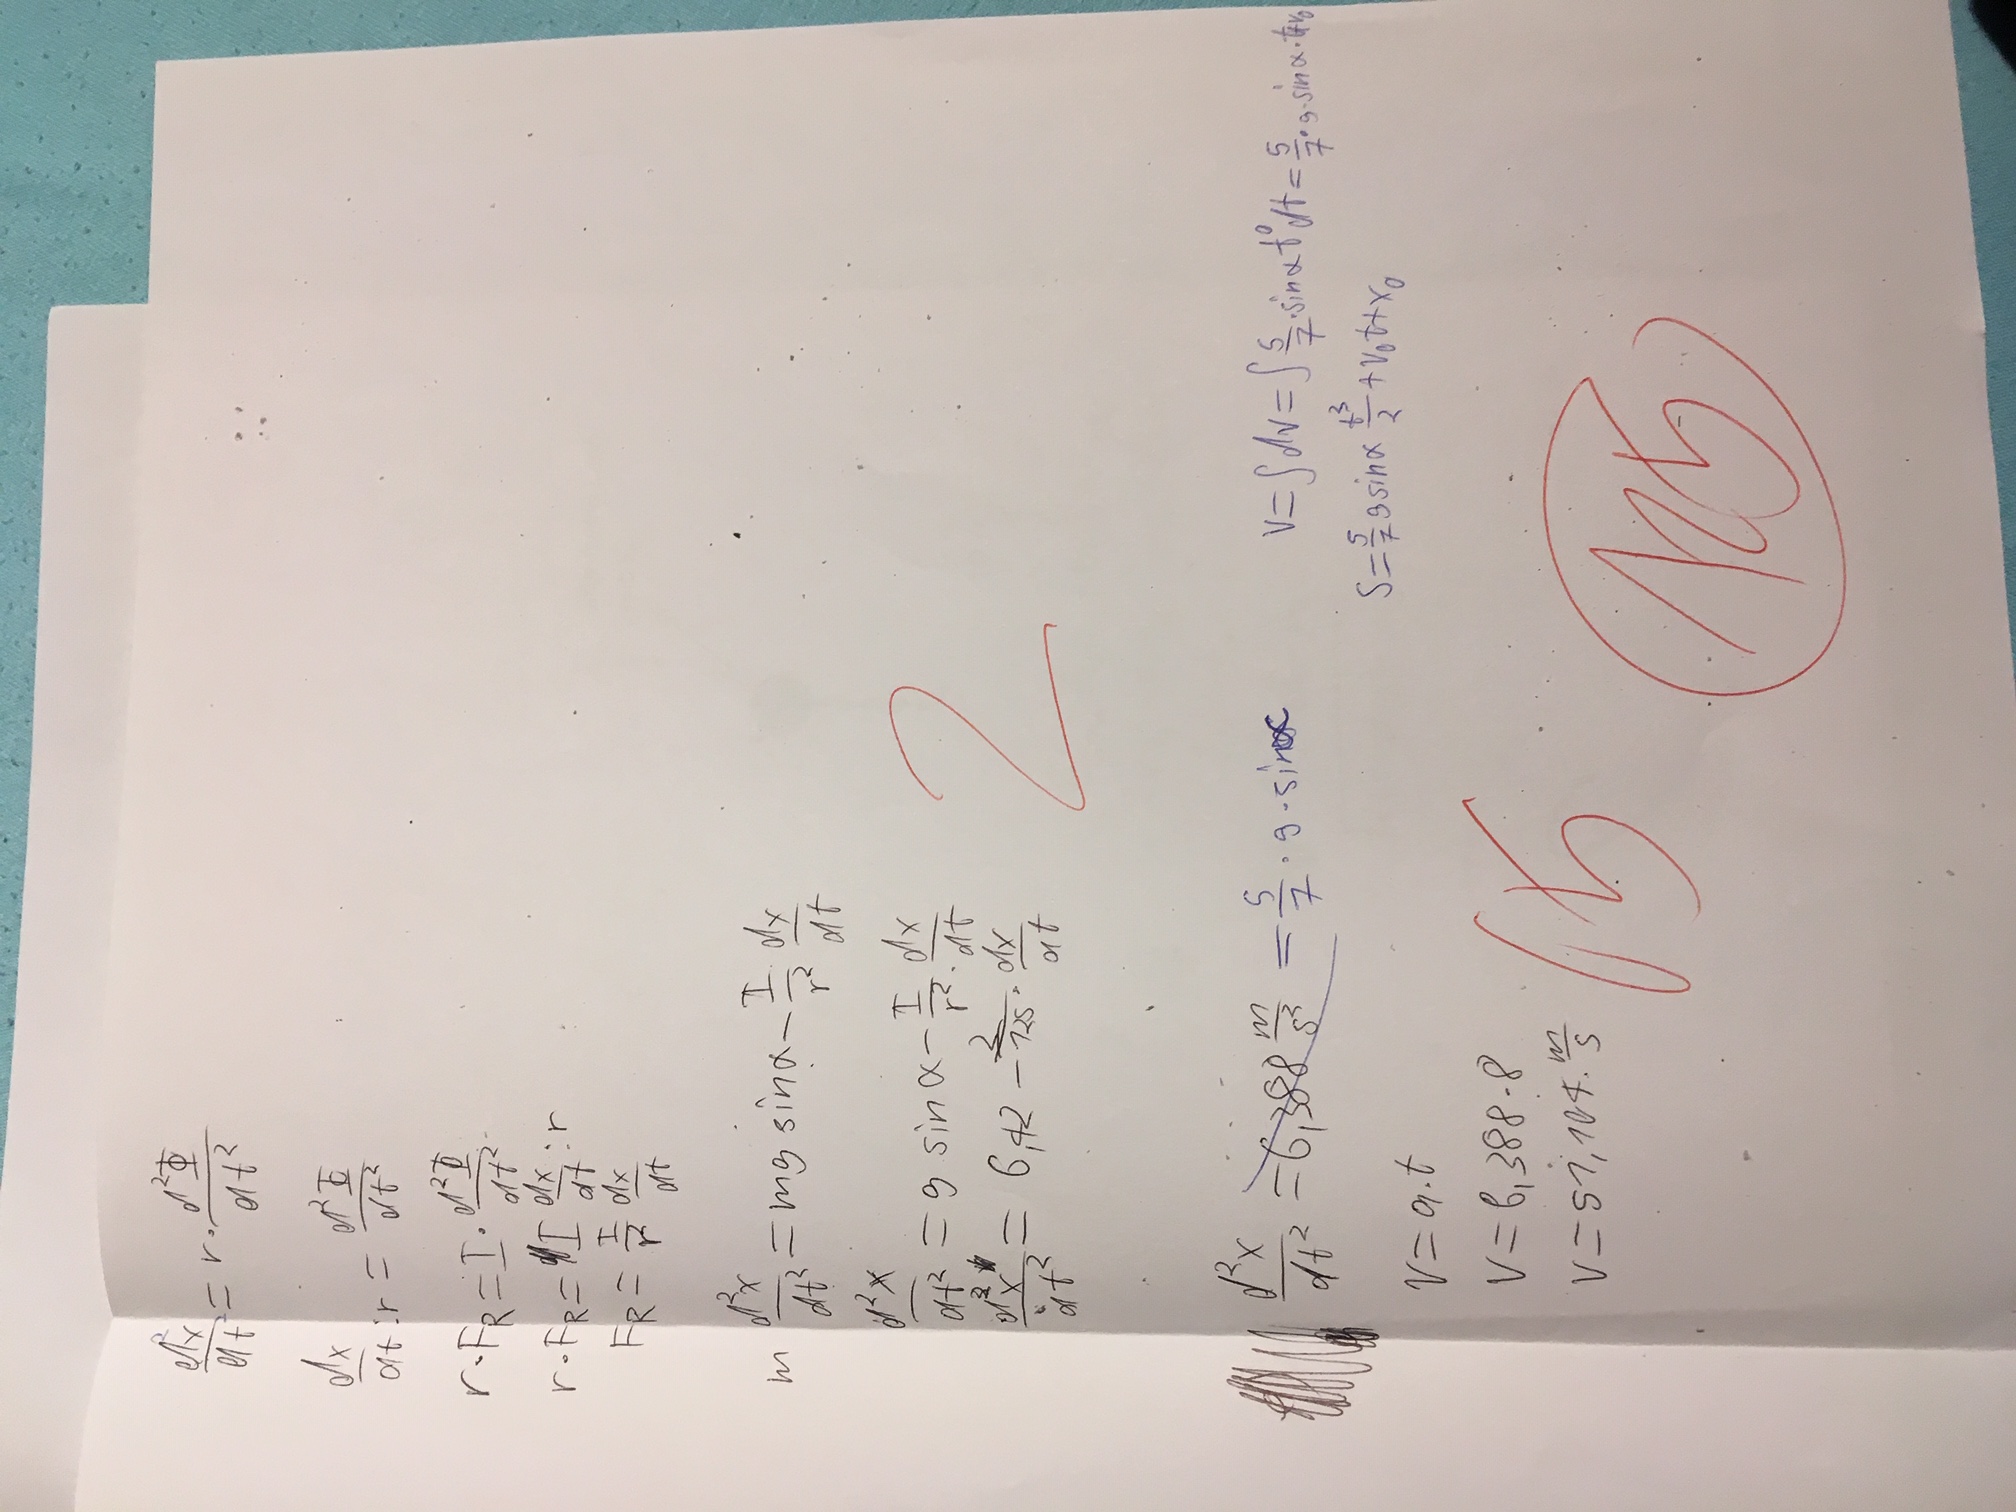 d²x/dt² = r · d²Φ/dt²
dx/dt : r = d²Φ/dt²
r · F_R = I · d²Φ/dt²
r · F_R = I dx/dt : r
F_R = I/r² dx/dt
m d²x/dt² = mg sinα − I/r² dx/dt
d²x/dt² = g sinα − I/r² · dx/dt
d²x/dt² = 6,42 − 2/125 · dx/dt
2
d²x/dt² = 6,388 m/s² = 5/7 · g · sinα
V = ∫dv = ∫5/7 · sinα t⁰ dt = 5/7 · g · sinα · t + v₀
S = 5/7 g sinα t³/2 + v₀t + x₀
V = a · t
V = 6,388 · 8
V = 51,104 m/s